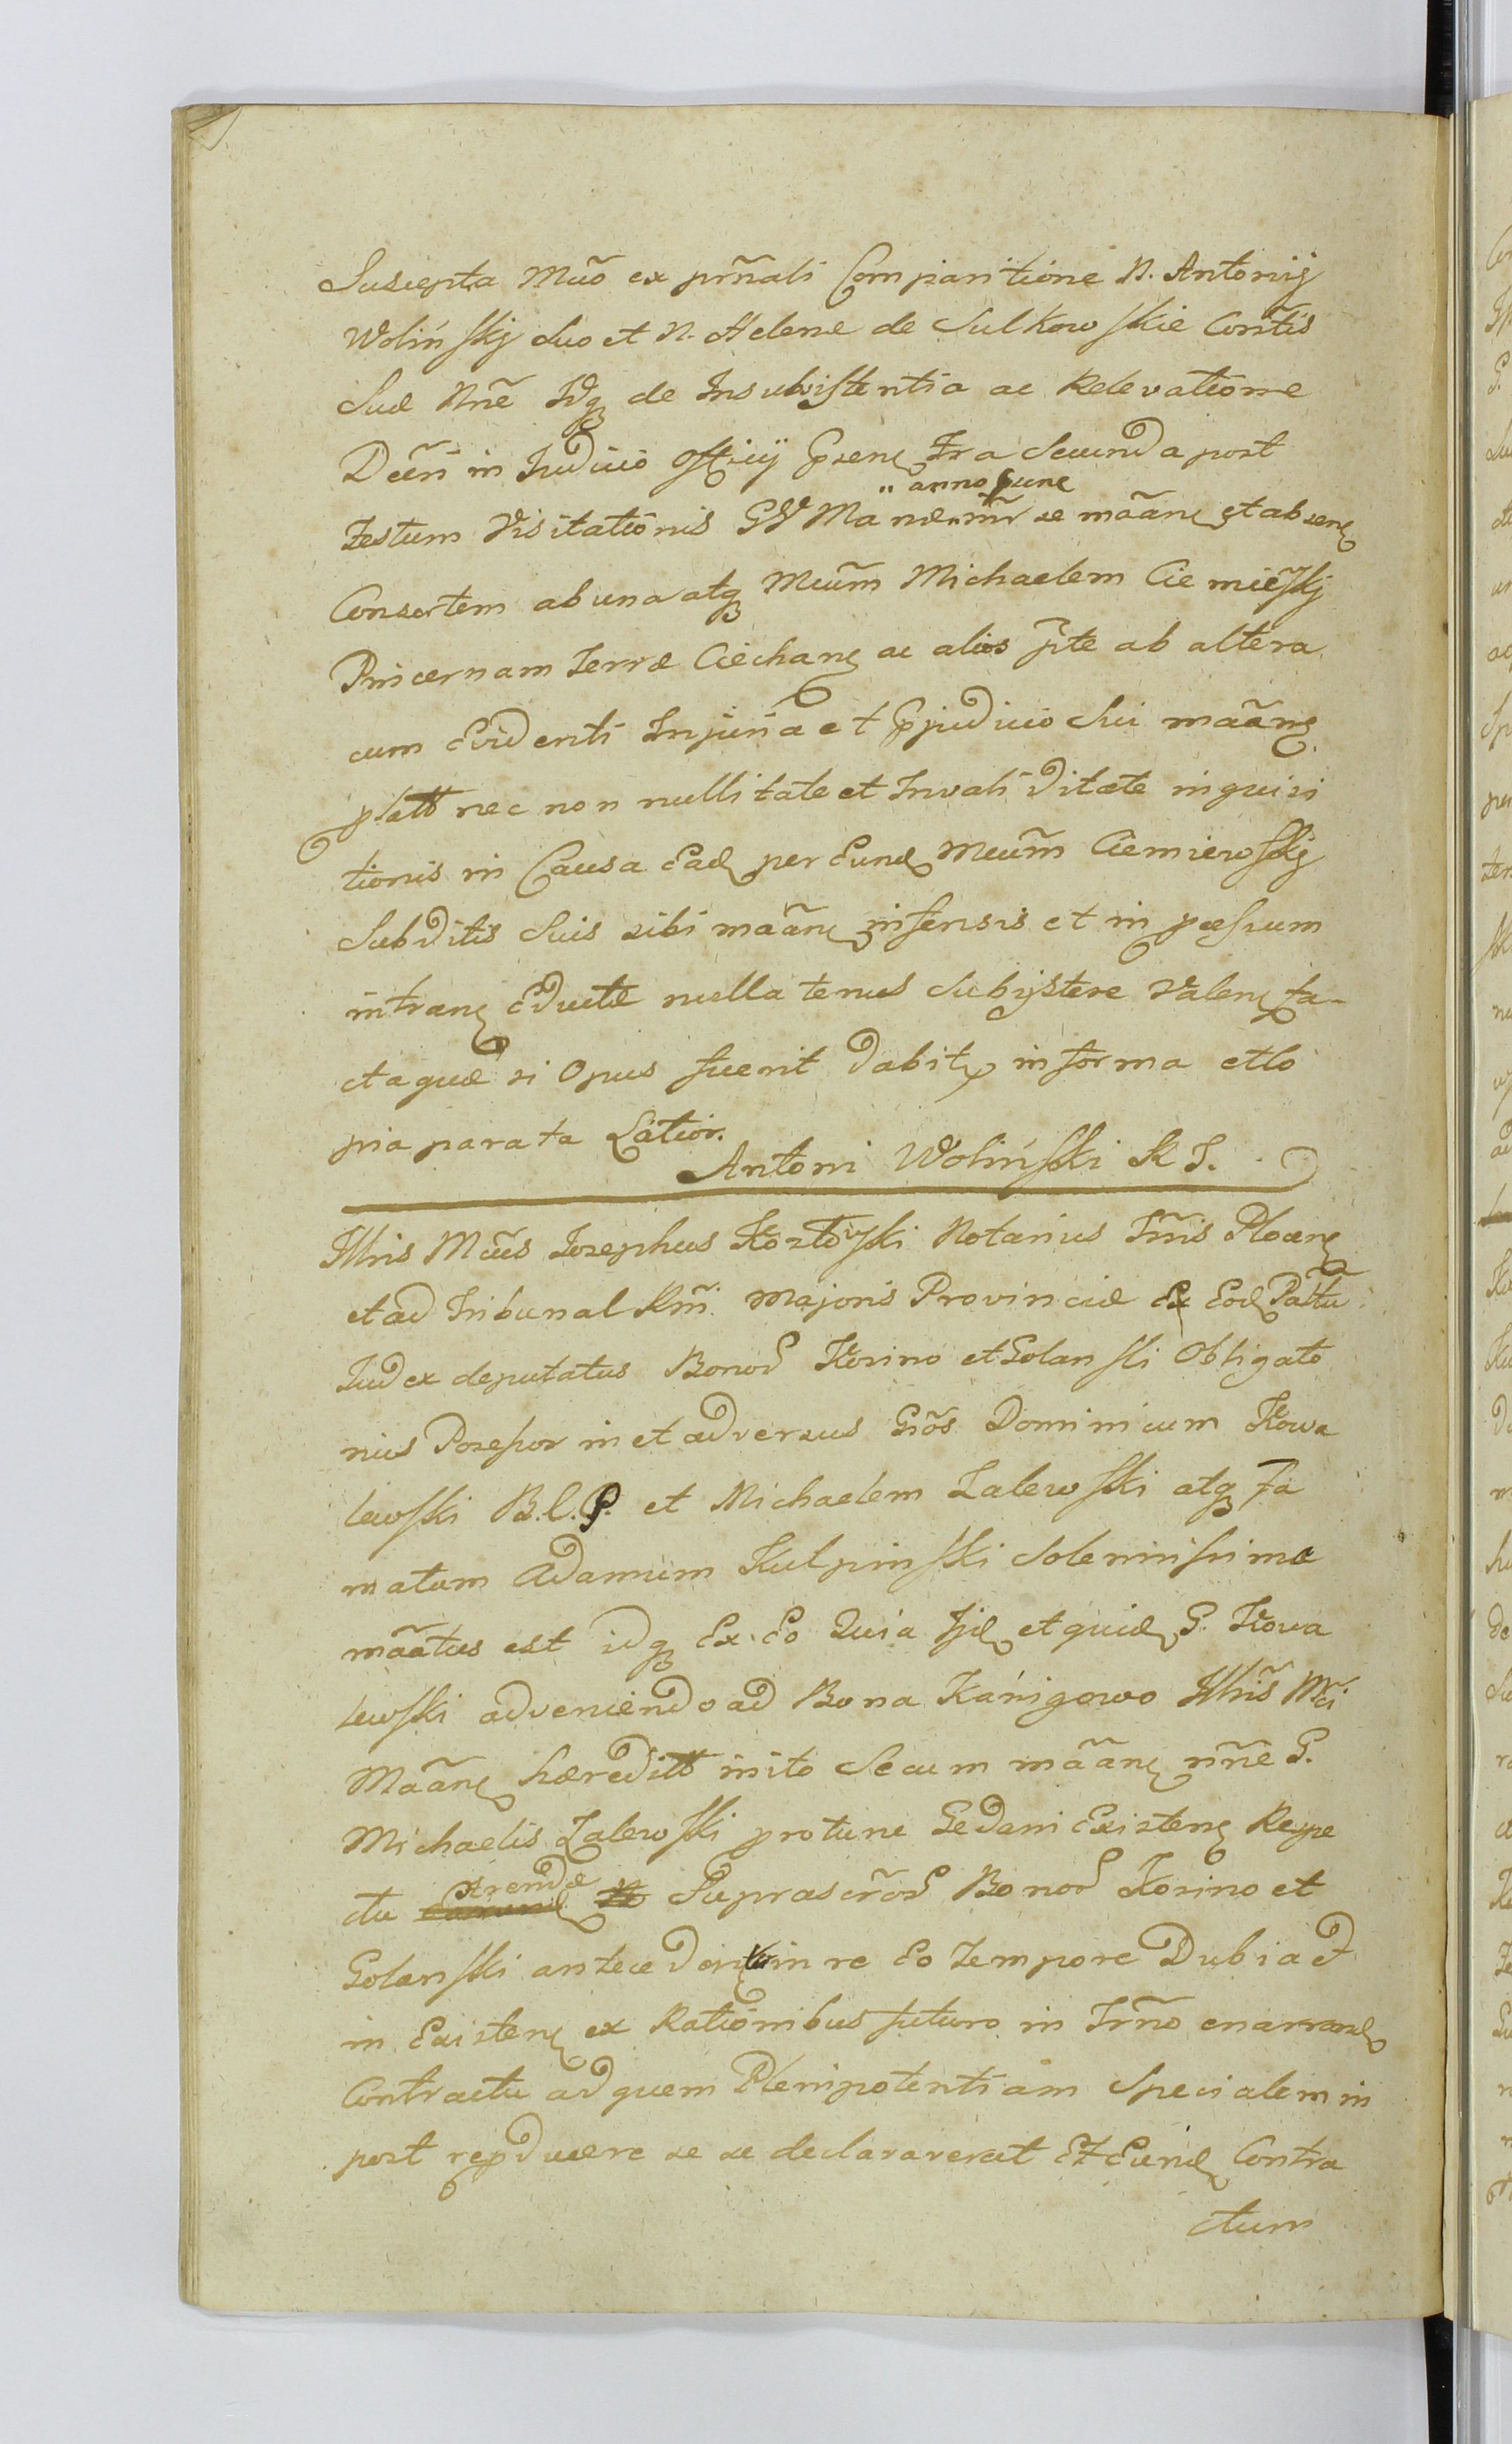 Suscepta Mãno ex prñali Comparitione N. Antonij
Wolińskj Suo et N. Helenæ de Sulkowskie Conr̃tis
Suæ Nñe Idq de Insubsistentia ac Relevatione
Decr̃i in Judicio Officij Fra Secunda post
anno hunc
Festum Visitationis GV Mariæ se mãan et absen
Consortem ab una atq Mcum̃ Michaelem Ciemiew̃skj
Pincernam Terræ Ciechan ac alios p̃te ab altera
cum Evidenti Injuria et Pjudicio Sui mãan
platt nec non nullitate et Invaliditate inquisi
tionis in Causa Ead per Eund Mcum̃ Ciemiewskj
Subditis Suis sibi mãan infensis et in pessum
intran Eductæ nulla tenus Subsistere Valen fa-
ctaquæ si Opus fuerit dabit in forma et Co
pia parata Latior.
Antoni Woliński R T.
Illris Mcus Josephus Kozłowski Notarius Trr̃is Plocen
et ad Tribunal Rñi Majoris Provinciæ Ex Eod Pałtu
Judex deputatus Bonor Kosino et Golanski Obligato
rius Possessor in et adversus Gños Dominicum Kowa
lewski B.C.P. et Michaelem Zalewski atq Fa
matum Adamum Kulpinski Solennissime
mãatus est idq Ex Eo Quia Ijd et quid G. Kowa
lewski adveniendo ad Bona Kánigowo Illris̃ Mci
Mãan hæreditt inito Secum mãan nñe G.
Michaelis Zalewski protunc Gedani Existen Respe
Arendæ
ctu Suprascr̃or Bonor Kosino et
Golanski anteceden in re Eo Tempore Dubia et
in Existen ex Rationibus futuro in Trr̃no enarrand
Contractu ad quem Plenipotentiam Specialem in
post repducere se se declaraverat Et Eund Contra
ctum